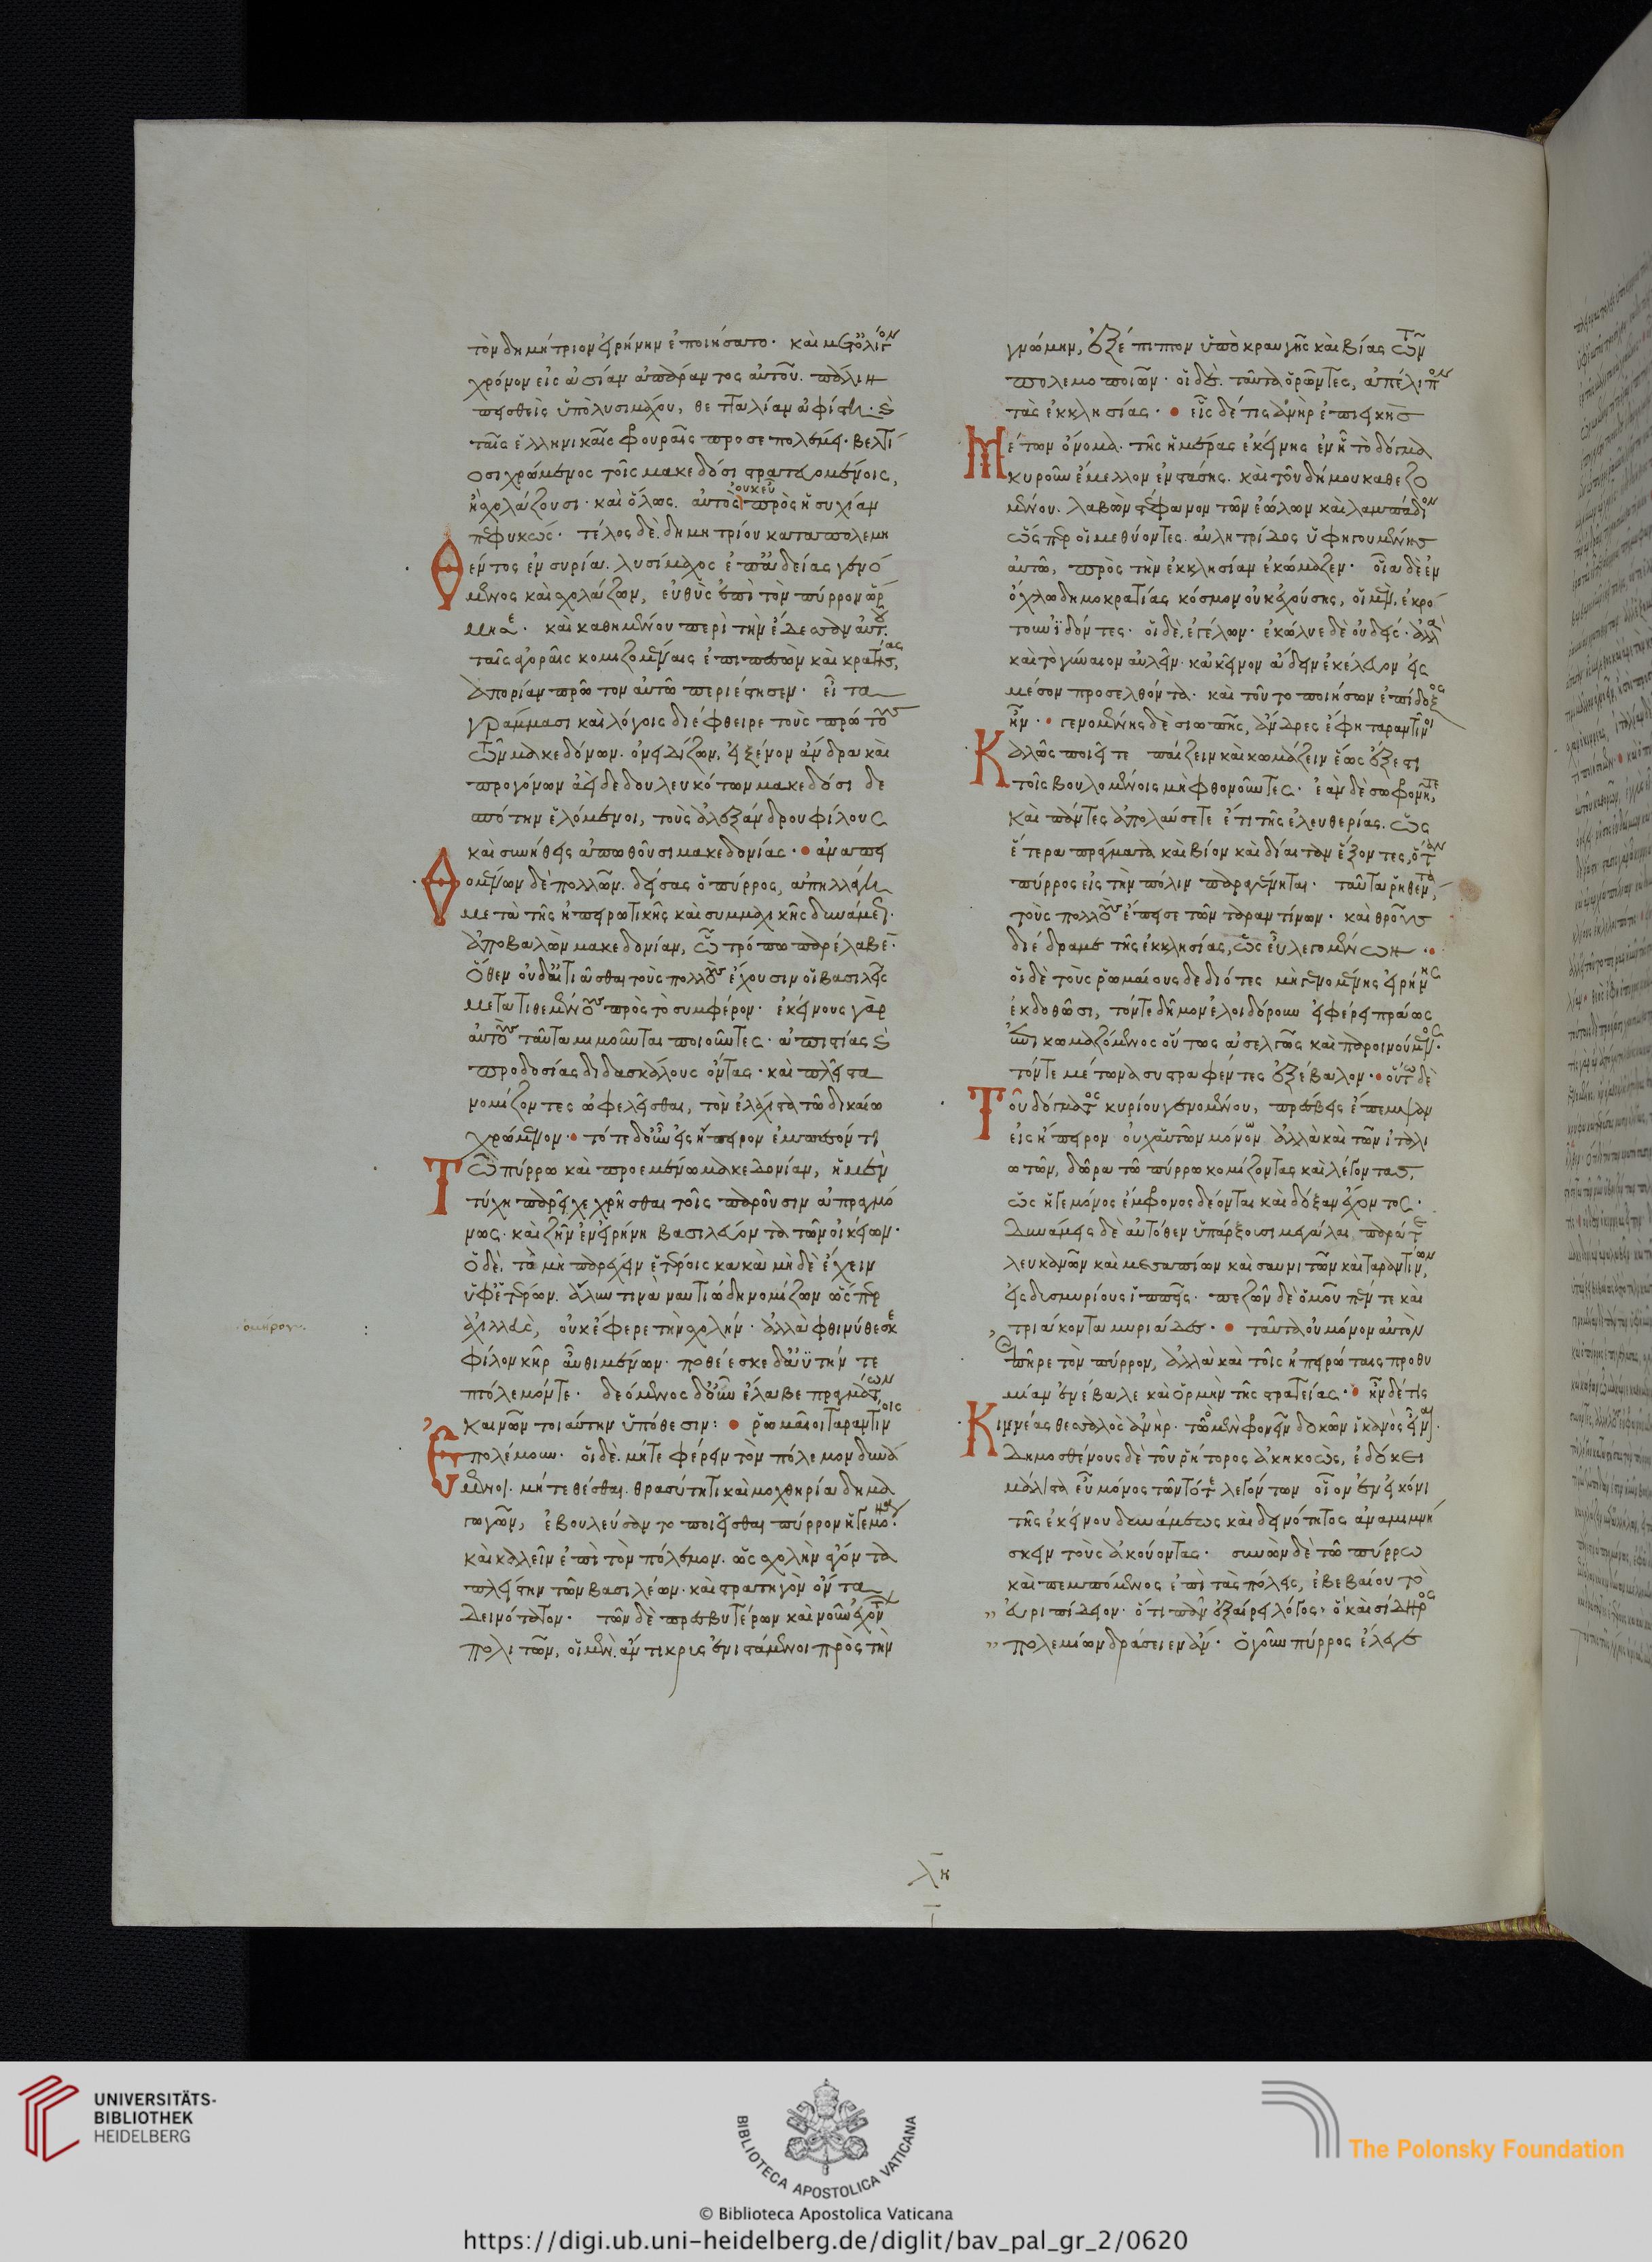 τὸν δημήτριον εἰρήνην ἐποιήσατο· καὶ μετ᾽ὀλίγον
χρόνον εἰς ἀσίαν ἀπάραντος αὐτοῦ. πάλιν
πεισθεὶς ὑπὸ λυσιμάχου, θετταλίαν ἀφίστη· καὶ
ταῖς ἑλληνικαῖς φρουραῖς προσεπολέμει· βελτί
οσι χρώμενος τοῖς μακεδόσι στρατευομένοις,
ἢ σχολάζουσι· καὶ ὅλως. αὐτὸς οὐκ εὖ πρὸς ἡσυχίαν
πεφυκώς· τέλος δὲ. δημητρίου καταπολεμη
θέντος ἐν συρία. λυσίμαχος ἐπ᾽ἀδείας γενό
μενος καὶ σχολάζων, εὐθὺς ἐπὶ τὸν πύρρον ὥρ
μησε. καὶ καθημένου περὶ τὴν ἔδεσσαν αὐτοῦ.
ταῖς ἀγοραῖς κομιζομέναις ἐπιπεσὼν καὶ κρατήσας,
ἀπορίαν πρῶτον αὐτῶ περιέστησεν. εἶτα
γράμμασι καὶ λόγοις διέφθειρε τοὺς πρώτους
τῶν μακεδόνων. ὀνειδίζων, εἰ ξένον ἄνδρα καὶ
προγόνων ἀεὶ δεδουλευκότων μακεδόσι δε
σπότην ἑλόμενοι, τοὺς ἀλεξάνδρου φίλους
καὶ συνήθεις ἀπωθοῦσι μακεδονίας· ἀναπει
θομένων δὲ πολλῶν. δείσας ὁ πύρρος, ἀπηλλάγη
μετὰ τῆς ἠπειρωτικῆς καὶ συμμαχικῆς δυνάμεως.
ἀποβαλὼν μακεδονίαν, ὧ τρόπω παρέλαβε·
ὅθεν οὐδ᾽αἰτιᾶσθαι τοὺς πολλοὺς ἔχουσιν οἱ βασιλεῖς
μετατιθεμένους πρὸς τὸ συμφέρον· ἐκείνους γὰρ
αὐτοὺς ταῦτα μιμοῦνται ποιοῦντες· ἀπιστίας καὶ
προδοσίας διδασκάλους ὄντας· καὶ πλεῖστα
νομίζοντες ὠφελεῖσθαι, τὸν ἐλάχιστα τῶ δικαίω
χρώμενον· τότε δ᾽οὖν εἰς ἤπειρον ἐκπεσόντι
τῶ πύρρω καὶ προεμένω μακεδονίαν, ἡ μὲν
τύχη παρεῖχε χρῆσθαι τοῖς παροῦσιν ἀπραγμό
νως· καὶ ζῆν ἐν εἰρήνη βασιλεύοντα τῶν οἰκείων·
ὁ δὲ, τὸ μὴ παρέχειν ἑτέροις κακὰ μηδὲ ἔχειν
ὑφ᾽ἑτέρων. ἄλυν τινὰ ναυτιώδη νομίζων ὥσπερ
ὁμήρου·
ἀχιλλεὺς, οὐκ ἔφερε τὴν σχολήν· ἀλλὰ φθινύθεσκε
φίλον κῆρ αὖθι μένων· ποθέεσκε δ᾽ἀϋτήν τε
πτόλεμόν τε· δεόμενος δ᾽οὖν ἔλαβε πραγμάτων
καινῶν τοιαύτην ὑπόθεσιν: ῥωμαῖοι ταραντίνοις
ἐπολέμουν· οἱ δὲ. μήτε φέρειν τὸν πόλεμον δυνά
μενοι. μήτε θέσθαι. θρασύτητι καὶ μοχθηρία δημα
γωγῶν, ἐβουλεύσαντο ποιεῖσθαι πύρρον ἡγεμόνα.
καὶ καλεῖν ἐπὶ τὸν πόλεμον. ὡς σχολὴν ἄγοντα
πλείστην τῶν βασιλέων· καὶ στρατηγὸν ὄντα
δεινότατον· τῶν δὲ πρεσβυτέρων καὶ νοῦν ἐχόντων
πολιτῶν, οἱ μὲν. ἄντικρυς ἐνιστάμενοι πρὸς τὴν
γνώμην, ἐξέπιπτον ὑπὸ κραυγῆς καὶ βίας τῶν
πολεμοποιῶν· οἱ δὲ. ταῦτα ὁρῶντες, ἀπέλιπον
τὰς ἐκκλησίας· εἷς δέ τις ἀνὴρ ἐπιεικὴς
μέτων ὄνομα. τῆς ἡμέρας ἐκείνης ἐν ἧ τὸ δόγμα
κυροῦν ἔμελλον ἐνστάσης. καὶ τοῦ δήμου καθεζο
μένου. λαβὼν στέφανον τῶν ἑώλων καὶ λαμπάδιον
ὥσπερ οἱ μεθύοντες. αὐλητρίδος ὑφηγουμένης
αὐτῶ, πρὸς τὴν ἐκκλησίαν ἐκώμαζεν· οἷα δὲ ἐν
ὄχλω δημοκρατίας κόσμον οὐκ ἐχούσης, οἱ μὲν, ἐκρό
τουν ἰδόντες· οἱ δὲ, ἐγέλων· ἐκώλυε δὲ οὐδείς· ἀλλὰ
καὶ τὸ γύναιον αὐλεῖν· κἀκεῖνον ἄδειν ἐκέλευον εἰς
μέσον προσελθόντα· καὶ τοῦτο ποιήσων ἐπίδοξος
ἦν· γενομένης δὲ σιωπῆς, ἄνδρες ἔφη ταραντῖνοι
καλῶς ποιεῖτε παίζειν καὶ κωμάζειν ἕως ἔξεστι
τοῖς βουλομένοις μὴ φθονοῦντες· ἐὰν δὲ σωφρονῆτε,
καὶ πάντες ἀπολαύσετε ἔτι τῆς ἐλευθερίας. ὡς
ἕτερα πράγματα καὶ βίον καὶ δίαιταν ἕξοντες, ὅταν
πύρρος εἰς τὴν πόλιν παραγένηται· ταῦτα ῥηθέντα,
τοὺς πολλοὺς ἔπεισε τῶν ταραντίνων· καὶ θροῦς
διέδραμε τῆς ἐκκλησίας, ὡς εὖ λεγομένων·
οἱ δὲ τοὺς ῥωμαίους δεδιότες μὴ γενομένης εἰρήνης
ἐκδοθῶσι, τόν τε δῆμον ἐλοιδόρουν εἰ φέρει πράως
ἐπικωμαζόμενος οὕτως ἀσελγῶς καὶ παροινούμενος·
τόν τε μέτωνα συστραφέντες ἐξέβαλον· οὕτω δὲ
τοῦ δόγματος κυρίου γενομένου, πρέσβεις ἔπεμψαν
εἰς ἤπειρον οὐχ αὑτῶν μόνον ἀλλὰ καὶ τῶν ἰταλι
ωτῶν, δῶρα τῶ πύρρω κομίζοντας καὶ λέγοντας,
ὡς ἡγεμόνος ἔμφρονος δέονται καὶ δόξαν ἔχοντος·
δυνάμεις δὲ αὐτόθεν ὑπάρξουσι μεγάλαι παρά τε
λευκανῶν καὶ μεσαπίων καὶ σαυνιτῶν καὶ ταραντίνων,
εἰς δισμυρίους ἱππεῖς· πεζῶν δὲ ὁμοῦ πέντε καὶ
τριάκοντα μυριάδες· ταῦτα οὐ μόνον αὐτὸν
ἐπῆρε τὸν πύρρον, ἀλλὰ καὶ τοῖς ἠπειρώταις προθυ
μίαν ἐνέβαλε καὶ ὁρμὴν τῆς στρατείας· ἦν δέ τις
κιννέας θεσσαλὸς ἀνὴρ· τῶ μὲν φρονεῖν δοκῶν ἱκανὸς εἶναι·
δημοσθένους δὲ τοῦ ῥήτορος ἀκηκοὼς, ἐδόκει
μάλιστα εὖ μόνος τῶν τότε λεγόντων οἷον ἐν εἰκόνι
τῆς ἐκείνου δυνάμεως καὶ δεινότητος ἀναμιμνή
σκειν τοὺς ἀκούοντας· συνὼν δὲ τῶ πύρρω
καὶ πεμπόμενος ἐπὶ τὰς πόλεις, ἐβεβαίου τὸ
εὐριπίδειον· ὅτι πᾶν ἐξαίρει λόγος· ὃ καὶ σίδηρος
πολεμίων δράσειεν ἄν· ὁ γοῦν πύρρος ἔλεγε
λη
UNIVERSITÄTS-
BIBLIOTHEK
HEIDELBERG
BIBLIOTECA APOSTOLICA VATICANA
The Polonsky Foundation
© Biblioteca Apostolica Vaticana
https://digi.ub.uni-heidelberg.de/diglit/bav_pal_gr_2/0620